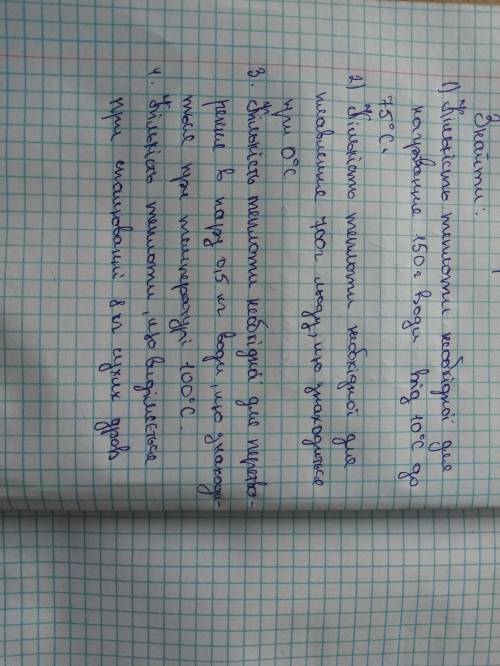 Знайти:
1) Кількість теплоти необхідної для
нагрівання 150 г води від 10°C до
75°C.
2) Кількість теплоти необхідної для
плавлення 400г льоду, що знаходиться
при 0°C
3. Кількість теплоти необхідної для перетво-
рення в пару 0,5 кг води, що знаходи-
ться при температурі 100°C.
4. Кількість теплоти, що виділяється
при спалюванні 8 кг сухих дров